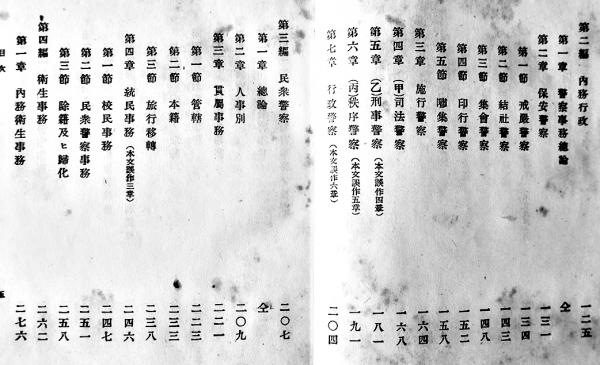 第二編 內務行政 一二五
第一章 警察事務總論 仝
第二章 保安警察 一三一
第一節 戒嚴警察 一三四
第二節 結社警察 一四三
第三節 集會警察 一四八
第四節 印行警察 一五二
第五節 嘯集警察 一五八
第三章 施行警察 一六四
第四章 (甲)司法警察 一六八
第五章 (乙)刑事警察 (本文誤作四章) 一八一
第六章 (丙)秩序警察 (本文誤作五章) 一九一
第七章 行政警察 (本文誤作六章) 二〇四
第三編 民衆警察 二〇七
第一章 總論 仝
第二章 人事別 二〇九
第三章 貫屬事務 二二一
第一節 管轄 二二三
第二節 本籍 二三三
第三節 旅行移轉 二三八
第四章 統民事務 (本文誤作三章) 二四六
第一節 校民事務 二四七
第二節 民衆警察事務 二五一
第三節 除籍及ヒ歸化 二五八
第四編 衛生事務 二六二
第一章 內務衛生事務 二七六
目次
五